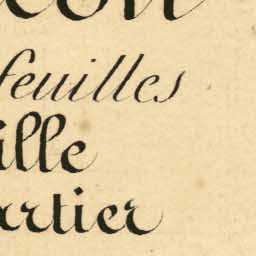 feuilles
ille
artier